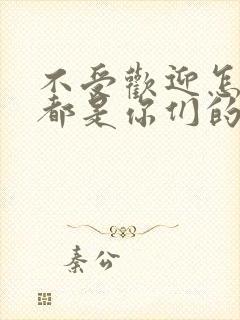 不受歡迎怎
都是你们的
秦公